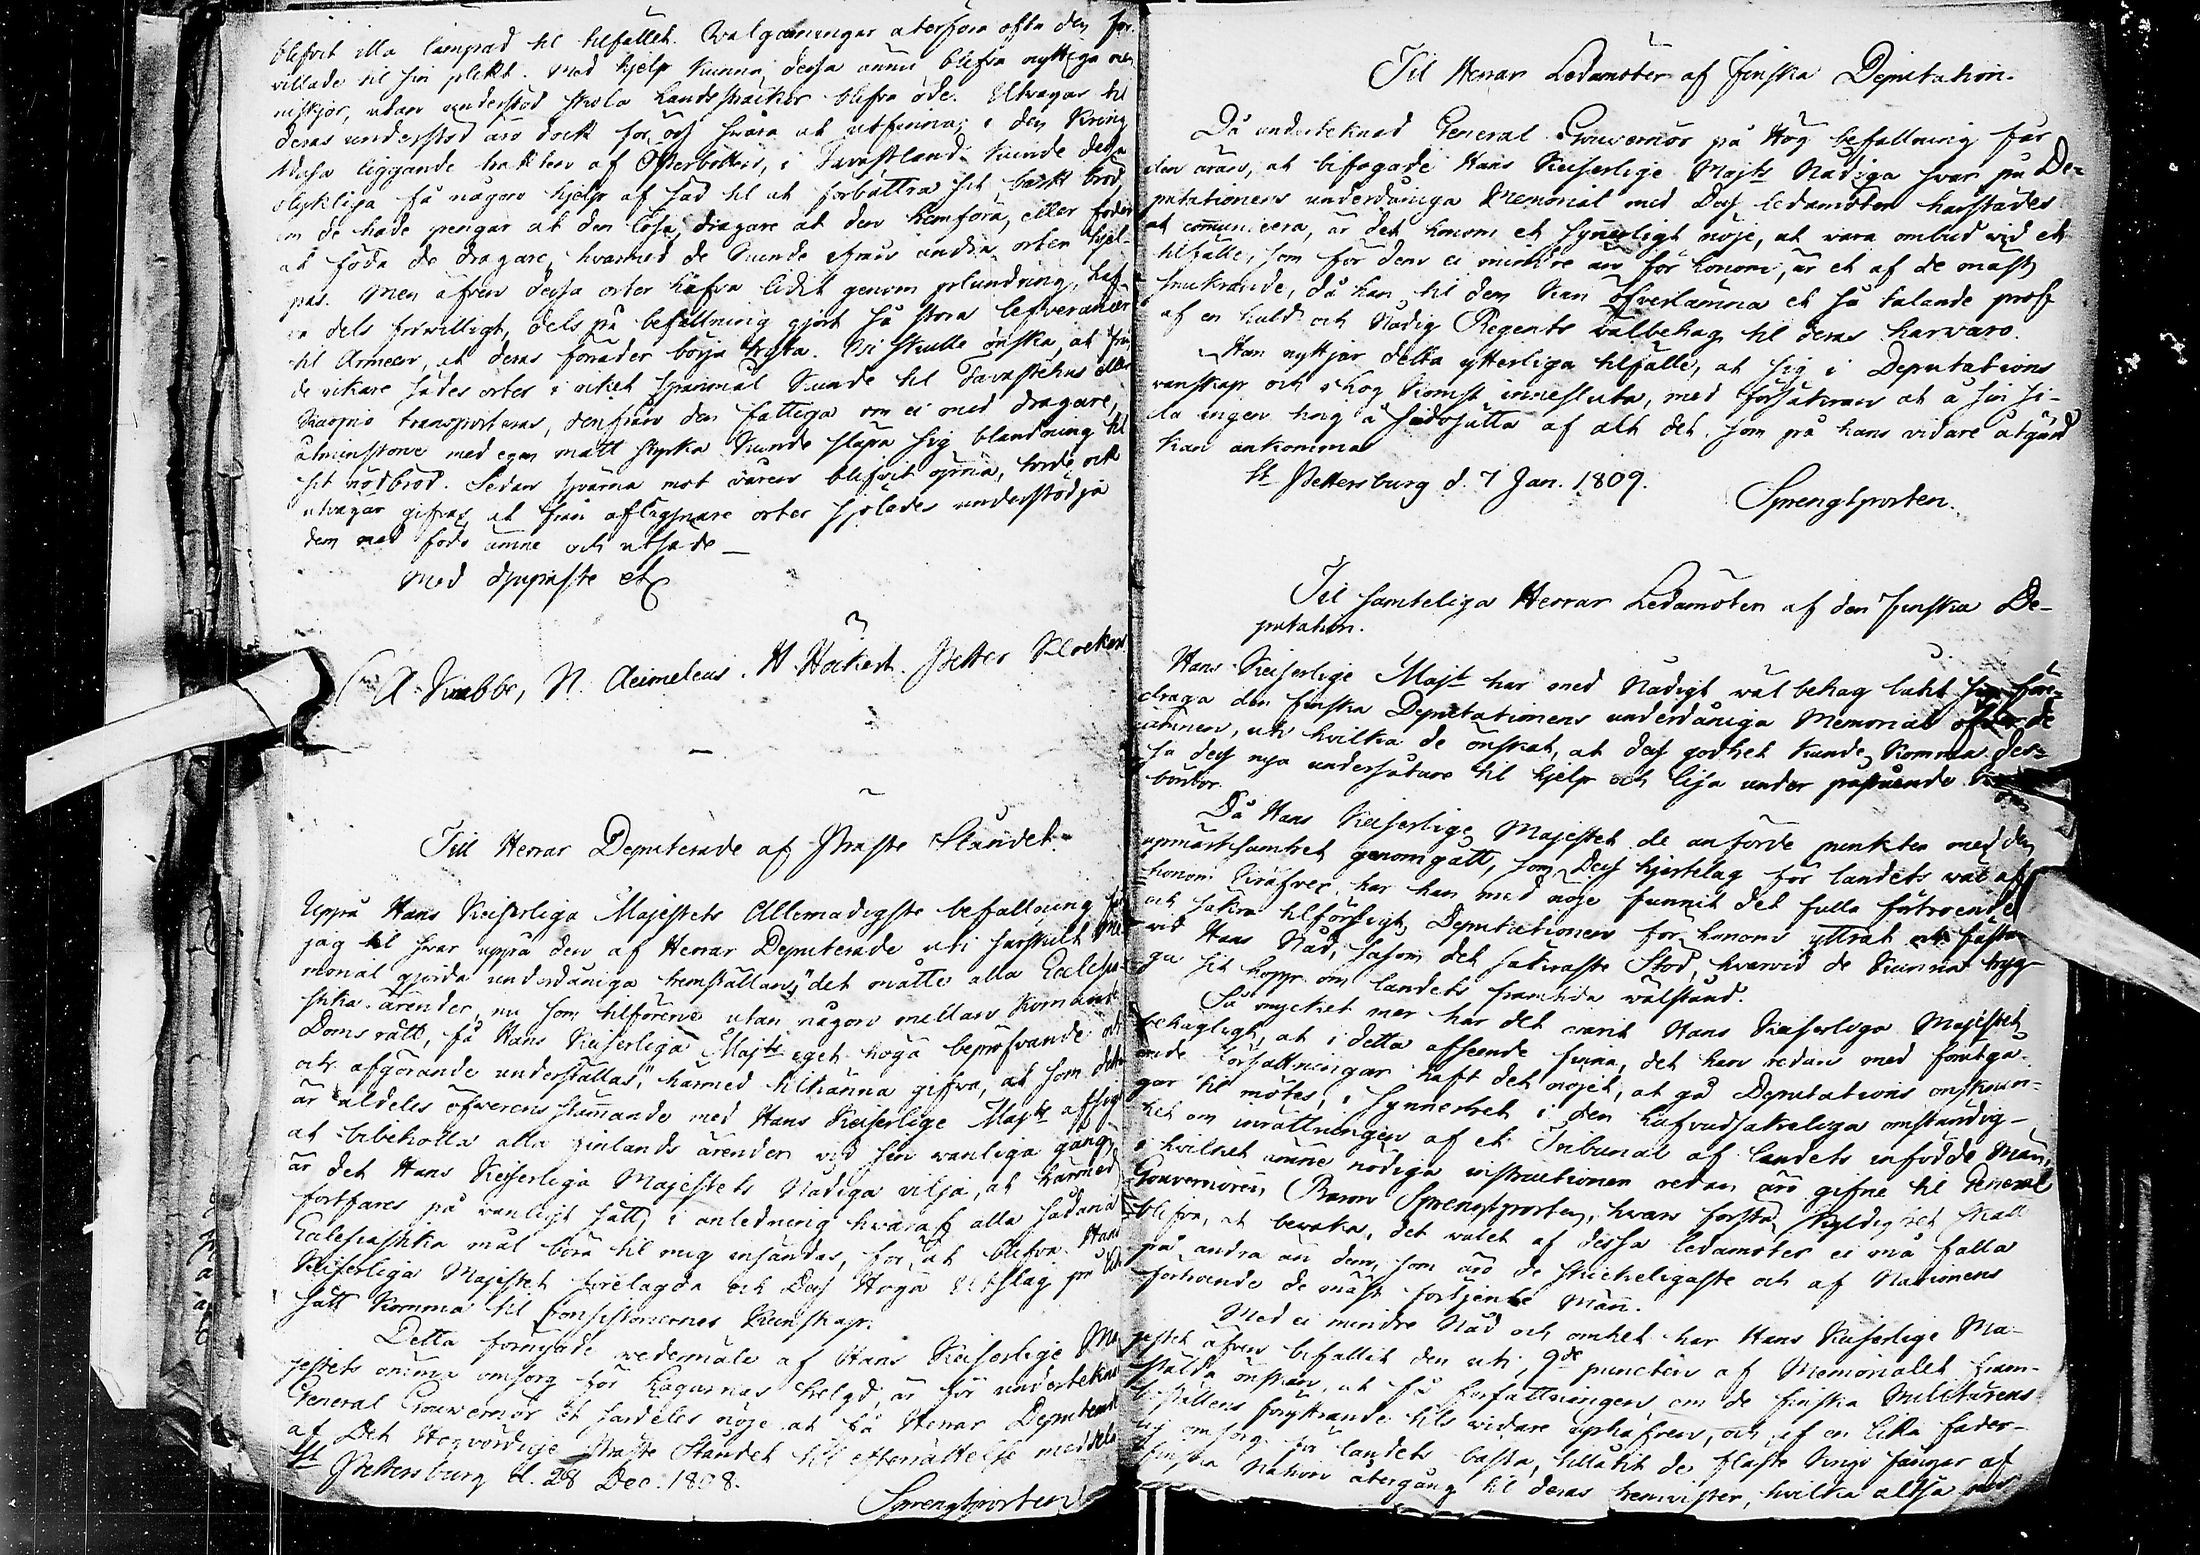 blefvit illa lämpad til tilfället. Välgerningar återföra ofta den för-
villade til sin plikt. Med hjelp kunna dessa ännu blifva nyttiga me-
niskjor, utan understöd skola landssträckor blifva öde. Utvägar til
deras understöd äro dock för oss svåra at utfinna; i den kring
Wasa liggande trakten af Österbotten, i Tavastland kunde dessa
olyckliga få någon hjelp af säd til at förbättra sit barkbröd,
om de hade pengar at den lösa, dragare at den hemföra, eller foder
at föda de dragare, hvarmed de kunde ifrån andra orter hjel-
pas. Men äfven dessa orter hafva lidit genom plundring, haf-
va dels friwilligt, dels på befallning gjort så stora lefverancer
til Armeen, at deras förråder börja tryta. Vi skulle önska, at från
de rikare sädes orter i riket spanmål kunde til Tavastehus eller
Kuopio transporteras, denifrån den fattiga om ei med dragare,
åtminstone med egen matt styrka kunde släpa sig blandning til
sit nödbröd. Sedan sjöarna mot våren blifvit öpna, torde ock
utvägar gifvas at från aflägsnare orter sjöledes understödja
dem med födo ämne och utsäde _
Med djupaste etc
C. A. Knabbe, N. Aeimelæus. H. Höckert. Petter Klockars
Till Herrar Deputerade af Präste Ståndet.
Uppå Hans Keiserliga Majestets Allernådigste befallning får
jag til svar uppå den af Herrar Deputerade uti särskilt Me-
morial gjorda underdåniga hemställan, "det måtte alla Ecclesia-
stika ärender, nu som tilförene utan någon mellan kommande
Doms rätt, få Hans Keiserliga Majts eget höga bepröfvande och
och afgörande underställas," härmed tilkänna gifva, at som detta
är aldeles öfwerensstämmande med Hans Keiserlige Majts afsigt
at bibehålla alla Finlands ärender vid sin vanliga gång,
är det Hans Keiserliga Majestets Nådiga vilja, at härmed
fortfares på vanligt sätt, i anledning hwaraf alla sådana
Ecclesiastika mål böra til mig insändas, för at blifva Hans
Keiserliga Majestet förelagda och Dess Höga Utslag på lika
sätt komma til Consistoriernes kunskap.
Detta förnyade wedermäle af Hans Keiserlige Ma-
jestets ömma omsorg för Lagarnas helgd, är för undertecknad
General Gouwernör et särdeles nöje at få Herrar Deputerade
af Det Högvördige Präste Ståndet till efterrättelse meddela
St Pettersburg d. 28 Dec. 1808.
Sprengtporten
Til Herrar Ledamöter af Finska Deputation.
Då undertecknad General Gouvernör på Hög befallning får
den äran, at bifogade Hans Keiserlige Majts Nådiga svar på De-
putationens underdåniga Memorial med Dess ledamöter härstädes
at communicera, är det honom et synnerligt nöje, at vara ombud vid et
tilfälle, som för dem ei mindre än för honom, är et af de mäst
smickrande, då han til dem kan öfverlämna et så talande prof
af en huld och Nådig Regents wälbehag til deras harvaro.
Han nyttjar detta ytterliga tilfälle, at sig i Deputations
vänskap och ihog komst innesluta, med försäkran at å sin si-
da ingen ting å sidosätta af alt det, som på hans vidare åtgärd
kan ankomma
St Pettersburg d. 7 Jan. 1809.
Sprengtporten.
Til samteliga Herrar Ledamöter af den Finska De-
putation.
Hans Keiserlige Majt har med Nådigt wälbehag låtit sig före-
draga den finska Deputationens underdåniga Memorial öfver de
ämnen, uti hvilka de önskat, at dess godhet kunde komma des-
sa dess nya undersåtare til hjelp och lisa under påstående
bördor.
Då Hans Keiserlige Majestet de anförde punkter med den
upmärksamhet genomgått, som Dess hjertelag för landets wäl af
honom kräfver, har han med nöje funnit det fulla förtroende
och säkra tilförsigt, Deputationen för honom yttrat och fästan
vid Hans Nåd, såsom det säkraste Stöd, hvarvid de kunna tryg-
ga sit hopp om landets framtida wälstånd.
Så mycket mer har det varit Hans Keiserliga Majestet
behagligt, at i detta afseende finna, det han redan med föregå-
ende författningar haft det nöjet, at gå Deputations önsknin-
gar til mötes, i synnerhet i den hufvudsakeliga omständig-
het om inrättningen af et Tribunal af landets infödde Män,
i hvilket ämne nödiga instructioner redan äro gifne til General
Gouverneuren Baron Sprengtporten, hvars första skyldighet skall
blifva, at bevaka, det walet af dessa ledamöter ei må falla
på andra än dem, som äro de skickeligaste och af Nationens
förtroende de mäst förtjente Män.
Med ei mindre Nåd och ömhet har Hans Keiserlige Ma-
jestet äfven befallit den uti 9de puncten af Memorialet fram-
stälda önskan, at få författningen om de finska Militärens
boställens förytrande tils vidare uphäfven, och af en lika fader-
lig omsorg för landets bästa, tillåtit de fläste krigs fångar af
finska Nation återgång til deras hemvister, hvilka altså med